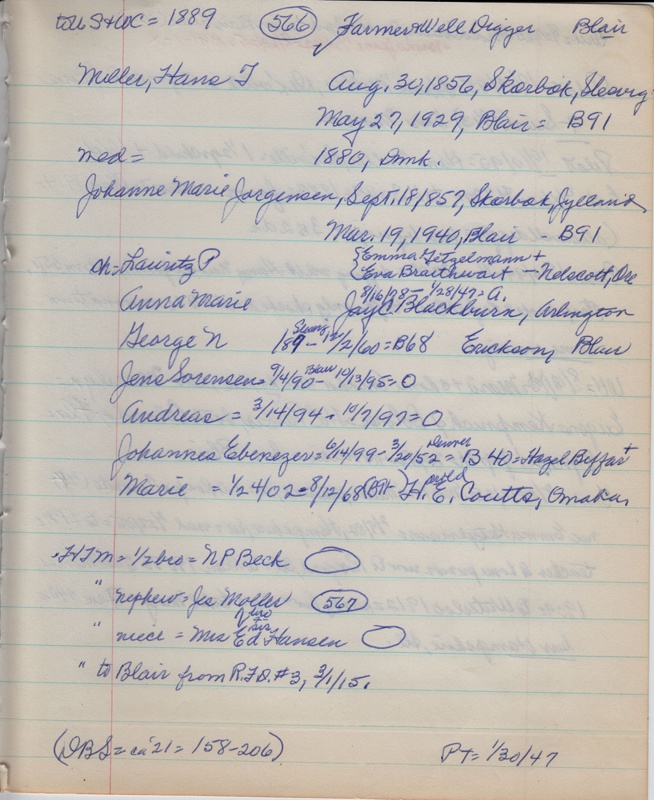 to U S + WC = 1889 566 Farmer + Well Digger Blair
Miller, Hans T Aug. 30, 1856, Skorbok,
May 27, 1929, Blair = B91
med = 1880, Dmk.
Johanne Marie Jorgensen, Sept. 18, 1857, Skorbok, Jylland
Mar. 19, 1940, Blair - B91
ch = Lauritz P {Emma Getzelmann +
Eva Braithwart - Nelscott, Ore
8/16/
Anna Marie Jay C. Blackburn, Arlington
George N 189 - 12/2/60 = B68 Erickson, Blair
Jens Sorensen = 9/4/90 - Blair 10/13/95 = 0
Andreas = 3/14/94 - 10/7/97 = 0
Johannes Ebenezer = 6/14/99 - 3/20/52 Denver = B 40 = Hazel Beffart
Marie = 1/24/02 = 8/12/68 H. E. Coutts, Omaha
HTM = 1/2 bro = N P Beck
" nephew = Jes Moller 567
" niece = Mrs Ed Hansen
" to Blair from R.F.D. #3, 3/1/15.
(DBS = ca '21 = 158-206) PT = 1/30/47